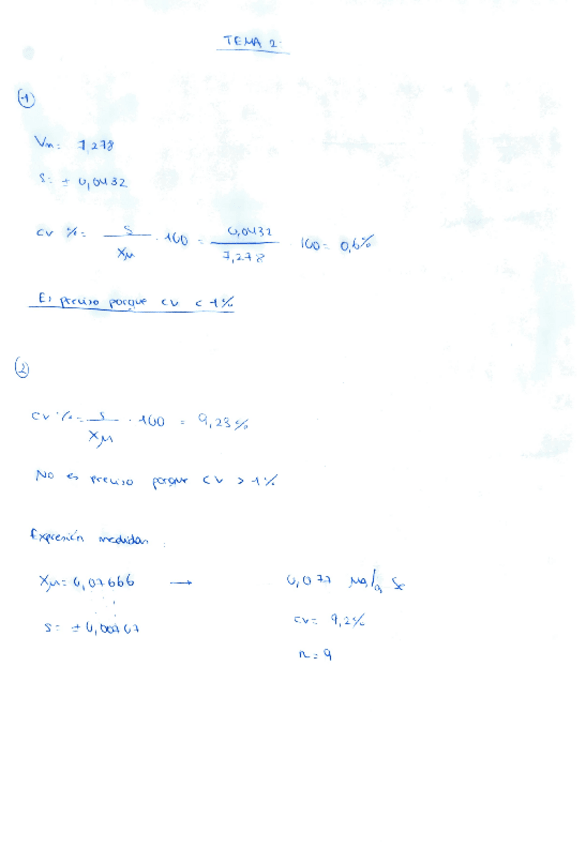 TEMA 2.
①
Vm = 7,278
S = ± 0,0432
CV % = S / XM · 100 = 0,0432 / 7,278 · 100 = 0,6%
Es preciso porque CV < 1%
②
CV % = S / XM · 100 = 9,23%
No es preciso porque CV > 1%
Expresión medidas:
XM = 0,07666 → 0,077 µg/g Se
S = ± 0,00707 CV = 9,2%
n = 9